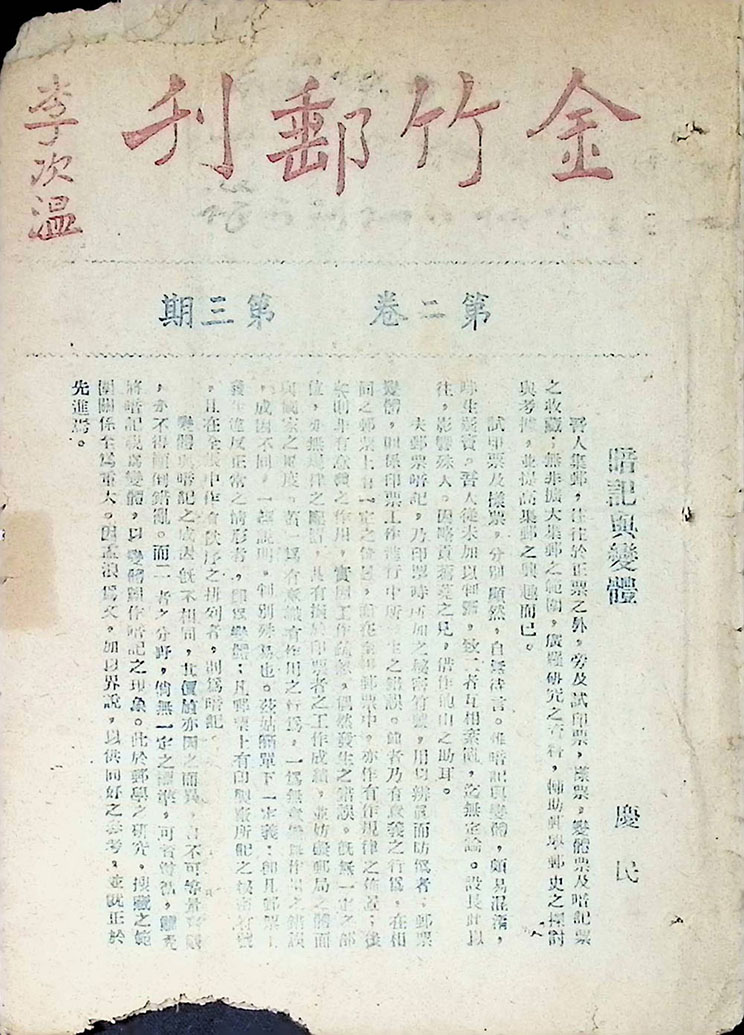 金竹郵刊
李次温
第二卷 第三期
暗記與變體
慶民
吾人集郵，往往於正票之外，旁及試印票，樣票，變體票及暗記票
之收藏；無非擴大集郵之範圍，廣羅研究之資料，輔助郵史之探討
與考據，並提高集郵之興趣而已。
試印票及樣票，分別顯然，自無待言。惟暗記與變體，頗易混淆，
時生疑竇。吾人從未加以判斷，致二者互相紊亂，迄無定論。設長此以
往，影響殊大。因略貢蒭蕘之見，借作他山之助耳。
夫郵票暗記，乃印票時所加之秘密符號，用以辨眞而防僞者；郵票
變體，則係印票工作進行中所發生之錯誤。前者乃有意義之行爲，在相
同之郵票上有一定之位置，而在全組郵票中，亦作有作規律之佈置；後
者則非有意義之作用，實因工作疏忽，偶然發生之錯誤。旣無一定之部
位，亦無規律之
印票者之工作成績，並妨礙郵局之體面
與國家之
。前一爲有意識有作用之行爲，一爲無意識無作用之錯誤
，成因不同，一經說明，判別殊易也。茲姑簡單下一定義：卽凡郵票上
發生違反正常之情形者，卽爲變體；凡郵票上有印製廠所記之秘密符號
，且在全張中作有秩序之排列者，則爲暗記。
變體與暗記之成因旣不相同，其價値亦因之而異，自不可等量齊觀
，亦不得顚倒錯亂。而二者之分野，尙無一定之標準，可資
將暗記認爲變體，以變體誤作暗記之現象。此於郵學之研究，搜藏之範
圍關係至爲重大。因孟浪爲文，加以界說，以供同好之參考，並就正於
先進焉。